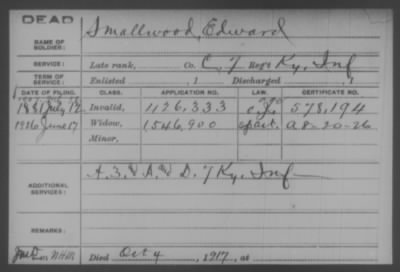 DEAD
Smallwood, Edward
NAME OF SOLDIER:
SERVICE: Late rank, Co. C, 7 Reg't Ky. Inf
TERM OF SERVICE: Enlisted , 1 Discharged , 1
DATE OF FILING. CLASS. APPLICATION NO. LAW. CERTIFICATE NO.
July 12 Invalid, 426,333 578,194
1926 June 17 Widow, 1,546,900 A 8-20-26
Minor,
ADDITIONAL SERVICES: A. 3, & A. and D. 7 Ky. Inf
REMARKS:
Died Oct 4 , 1917, at